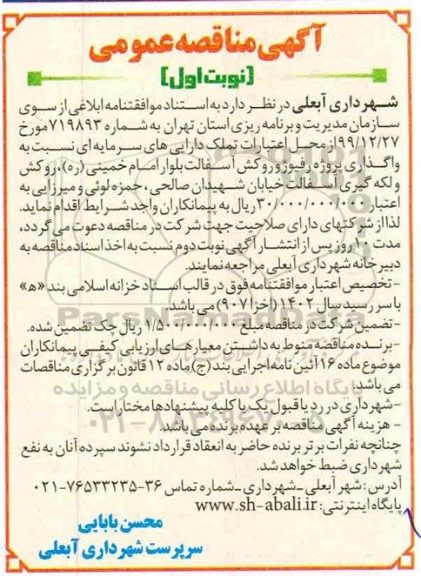 آگهی مناقصه عمومی
(نوبت اول)
شهرداری آبعلی در نظر دارد به استناد موافقتنامه ابلاغی از سوی
سازمان مدیریت و برنامه ریزی استان تهران به شماره ۷۱۹۸۹۳ مورخ
۹۹/۱۲/۲۷ از محل اعتبارات تملک دارایی های سرمایه ای نسبت به
واگذاری پروژه رفیوژ و روکش آسفالت بلوار امام خمینی (ره)، روکش
و لکه گیری آسفالت خیابان شهیدان صالحی، حمزه لوئی و میرزایی به
اعتبار ۳۰/۰۰۰/۰۰۰/۰۰۰ ریال به پیمانکاران واجد شرایط اقدام نماید.
لذا از شرکتهای دارای صلاحیت جهت شرکت در مناقصه دعوت می گردد،
مدت ۱۰ روز پس از انتشار آگهی نوبت دوم نسبت به اخذ اسناد مناقصه به
دبیرخانه شهرداری آبعلی مراجعه نمایند.
-تخصیص اعتبار موافقتنامه فوق در قالب اسناد خزانه اسلامی بند «ه»
با سررسید سال ۱۴۰۲ (اخزا ۹۰۷) می باشد.
-تضمین شرکت در مناقصه مبلغ ۱/۵۰۰/۰۰۰/۰۰۰ ریال چک تضمین شده.
-برنده مناقصه منوط به داشتن معیارهای ارزیابی کیفی پیمانکاران
موضوع ماده ۱۶ آئین نامه اجرایی بند (ج) ماده ۱۲ قانون برگزاری مناقصات
می باشد.
-شهرداری در رد یا قبول یک یا کلیه پیشنهادها مختار است.
- هزینه آگهی مناقصه بر عهده برنده می باشد.
چنانچه نفرات برتر برنده حاضر به انعقاد قرارداد نشوند سپرده آنان به نفع
شهرداری ضبط خواهد شد.
آدرس: شهر آبعلی - شهرداری - شماره تماس ۳۶-۷۶۵۳۳۲۳۵-۰۲۱
پایگاه اینترنتی: www.sh-abali.ir
محسن بابایی
سرپرست شهرداری آبعلی
ParsNamadData
پایگاه اطلاع رسانی مناقصه و مزایده